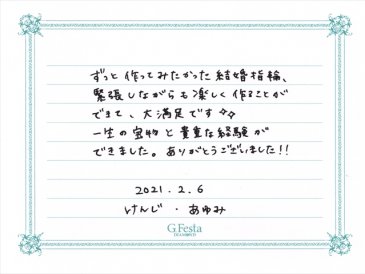 ずっと作ってみたかった結婚指輪、
緊張しながらも楽しく作ることが
できて、大満足です✧✧
一生の宝物と貴重な経験が
できました。ありがとうございました!!
2021.2.6
けんじ・あゆみ
G.Festa